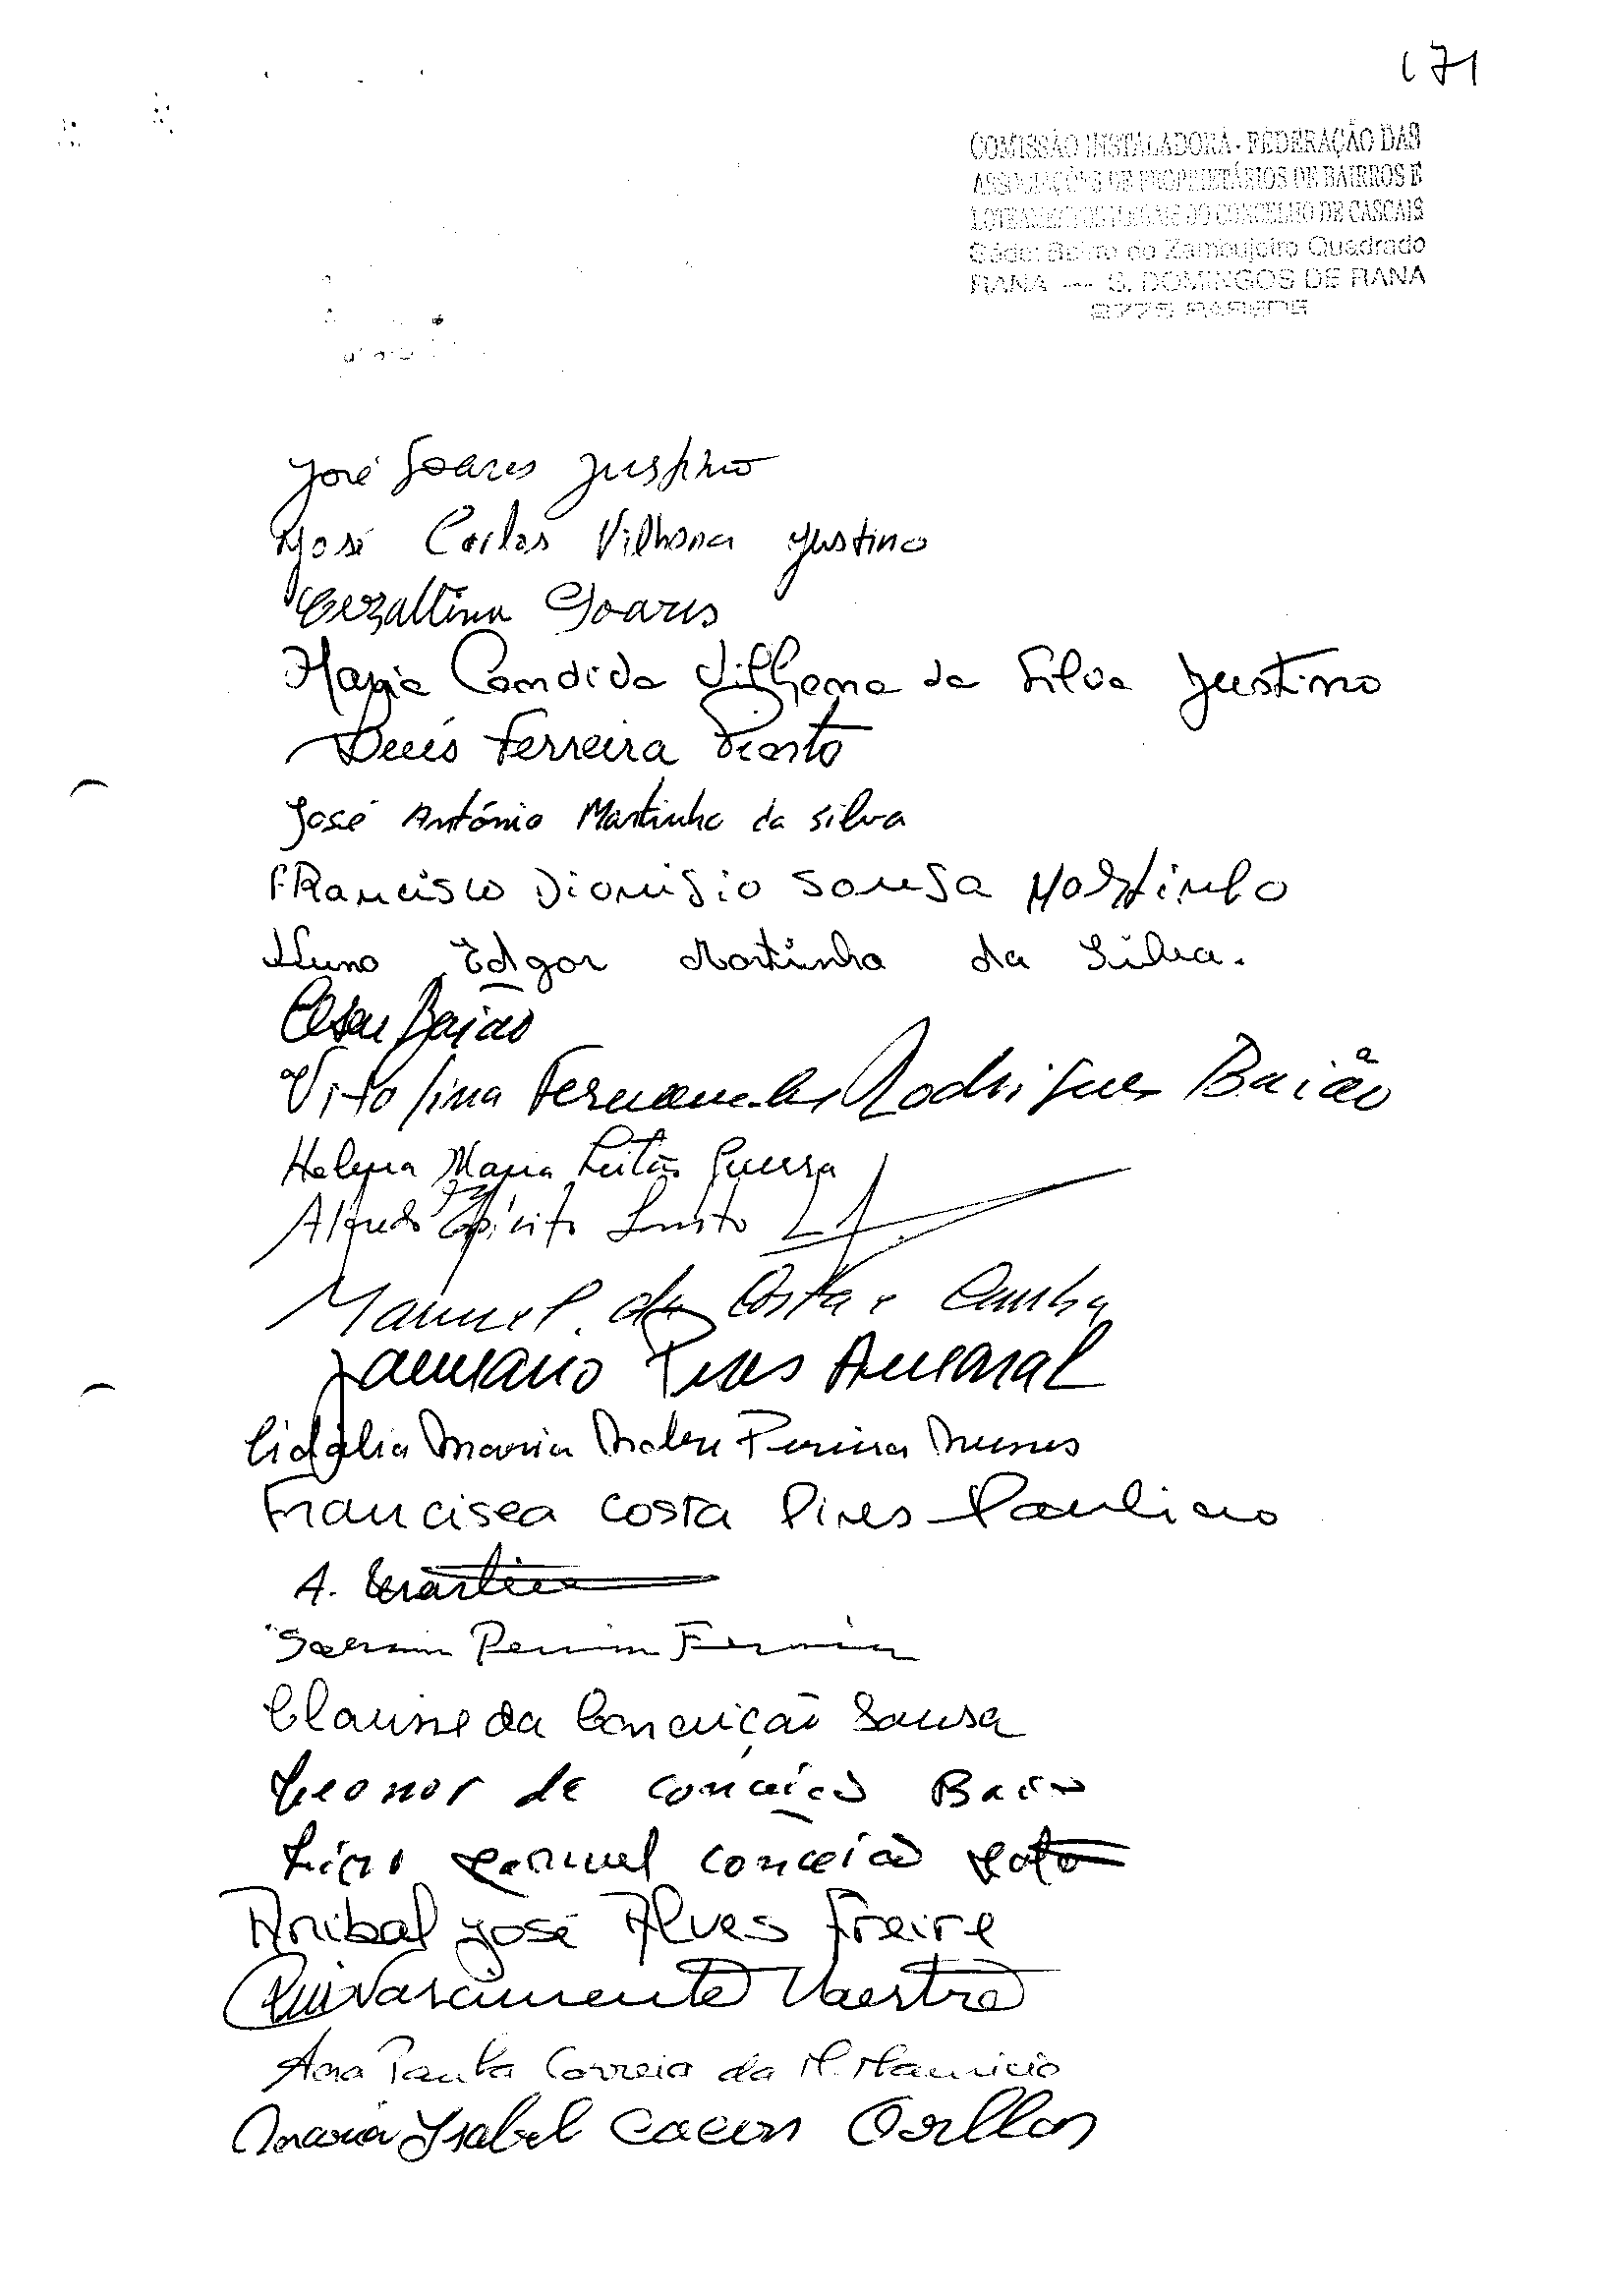 171
COMISSÃO INSTALADORA - FEDERAÇÃO DAS
ASSOCIAÇÕES DE PROPRIETÁRIOS DE BAIRROS E
LOTEAMENTOS ILEGAIS DO CONCELHO DE CASCAIS
Séde: Bairro do Zambujeiro Quadrado
RANA --- S. DOMINGOS DE RANA
2775 PAREDE
José Soares Justino
José Carlos Vilhena Justino
Cezaltina Soares
Maria Candida Vilhena da Silva Justino
Ferreira
José António Martinho da Silva
FRancisco Dionisio Sousa Martinho
Nuno Edgar Martinho da Silva.
Cesar Baião
Vitolina Fernandes Rodrigues Baião
Helena Maria Leitão Guerra
Alfredo Espírito Santo
Manuel da Costa e Cunha
Januario Pires Amaral
Cidália Maria Pereira Nunes
Francisca Costa Pires Paulino
A. Martins
Pereira Ferreira
da Conceição Sousa
Leonor da Conceição Baião
Manuel Conceição
Anibal José Alves Freire
Rui Nascimento Maestro
Ana Paula Correia da M. Mauricio
Maria Isabel